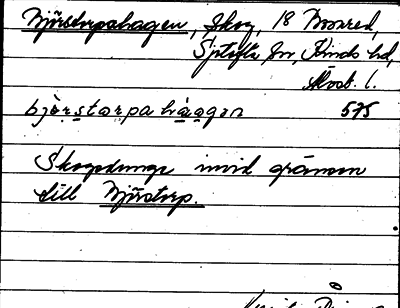 Björstorpahagen, skog, 18 Broared,
Sjötofta sn, Kinds hd,
Älvsb. l.
bjö̀rstorpahàgen 575
Skogsdunge invid gränsen
till Björstorp.